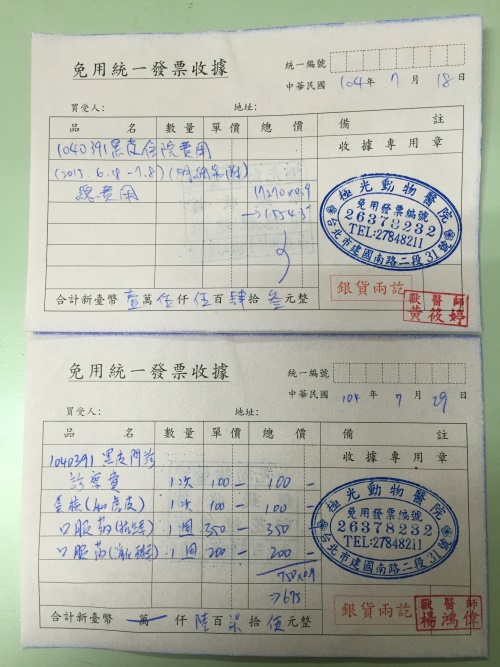 免用統一發票收據
統一編號
中華民國 104 年 7 月 18 日
買受人： 地址：
品 名 數量 單價 總價 備 註
收據專用章
1040391黑皮住院費用
(2015.6.18-7.8)
總費用
17270x0.9
→15543
極光動物醫院
免用發票編號
26378232
TEL:27848211
台北市建國南路二段31號
銀貨兩訖
獸醫師
黃筱婷
合計新臺幣 壹萬 伍仟 伍百 肆拾 叁元整
免用統一發票收據
統一編號
中華民國 104 年 7 月 29 日
買受人： 地址：
品 名 數量 單價 總價 備 註
收據專用章
1040391 黑皮門診
診察費 1次 100- 100-
1次 100- 100-
口服藥 1週 350- 350-
口服藥 1週 200- 200-
750x0.9
→675
極光動物醫院
免用發票編號
26378232
TEL:27848211
台北市建國南路二段31號
銀貨兩訖
獸醫師
楊鴻偉
合計新臺幣 萬 仟 陸百 柒拾 伍元整